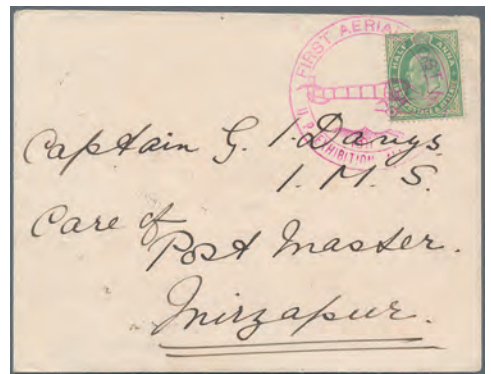 FIRST AERIAL
HALF ANNA
U. P. EXHIBITION
Captain G. I. Davys
I. M. S.
Care of
Post Master.
Mirzapur.